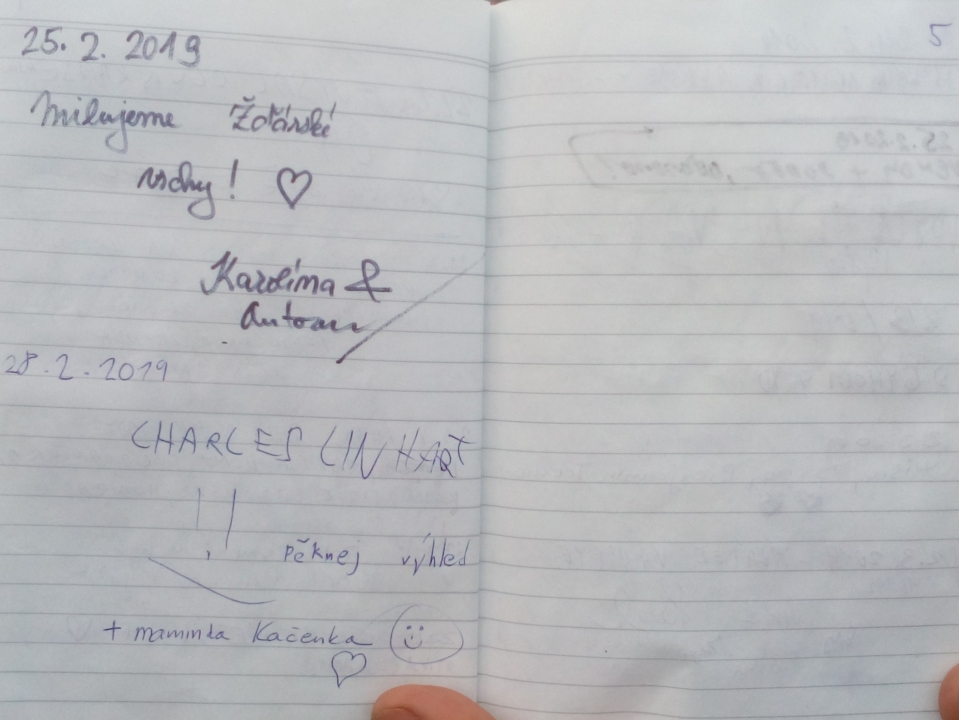 25. 2. 2019
Milujeme Žďárské
vrchy! ♡
Karolína &
Antonín
28. 2. 2019
CHARLES LINHART
!!
Pěknej výhled
+ maminka Kačenka
5